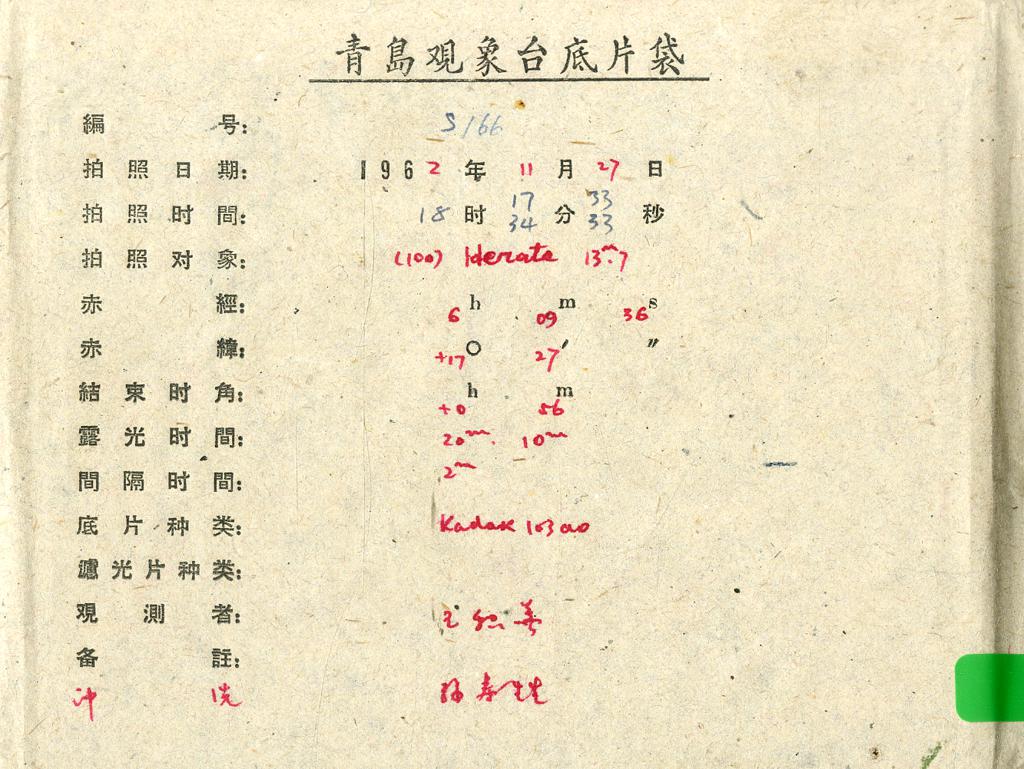 青島观象台底片袋
編号: S166
拍照日期: 1962年11月27日
拍照时間: 18时 17 34 分 33 33 秒
拍照对象: (100) Hekate 13ᵐ.7
赤經: 6h 09m 36s
赤緯: +17° 27′ ″
結束时角: +0h 56m
露光时間: 20ᵐ. 10ᵐ
間隔时間: 2ᵐ
底片种类: Kadak 103ao
濾光片种类:
观測者:
备註:
冲洗